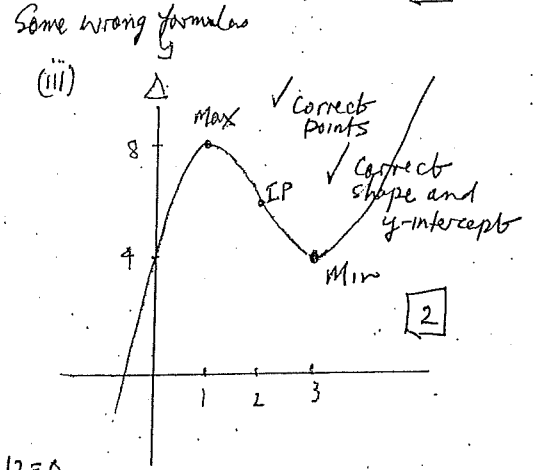 Some wrong formulas
y
(iii)
Max
✓ Correct
points
8
✓ Correct
shape and
y-intercept
IP
4
Min
2
1 2 3
12=0